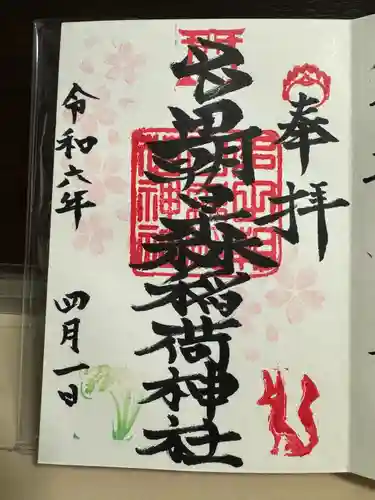 奉拝
森稲荷神社
令和六年
四月一日